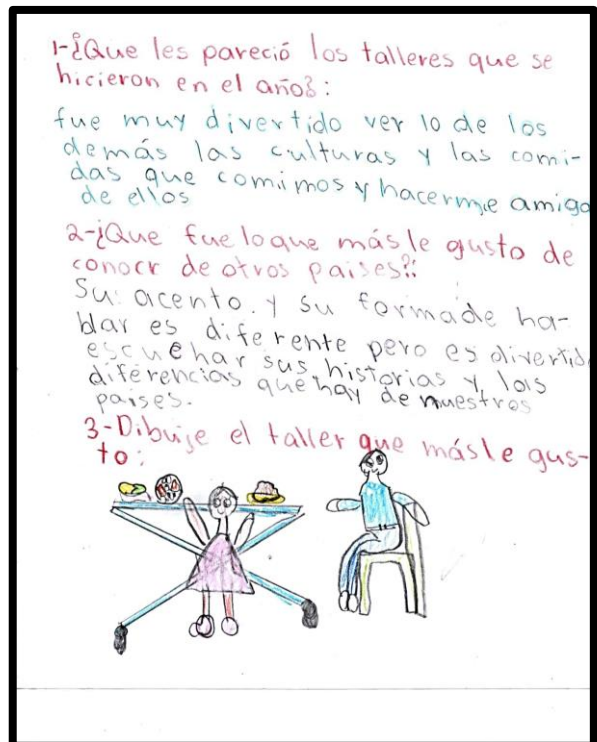 1-¿Que les pareció los talleres que se
hicieron en el año?:
fue muy divertido ver lo de los
demás las culturas y las comi-
das que comimos y hacerme amigo
de ellos
2-¿Que fue loque másle gusto de
conocr de otros paises?:
Su acento. y su formade ha-
blar es diferente pero es divertido
escuehar sus historias y las
diferencias que hay de nuestros
paises.
3-Dibuje el taller que másle gus-
to: